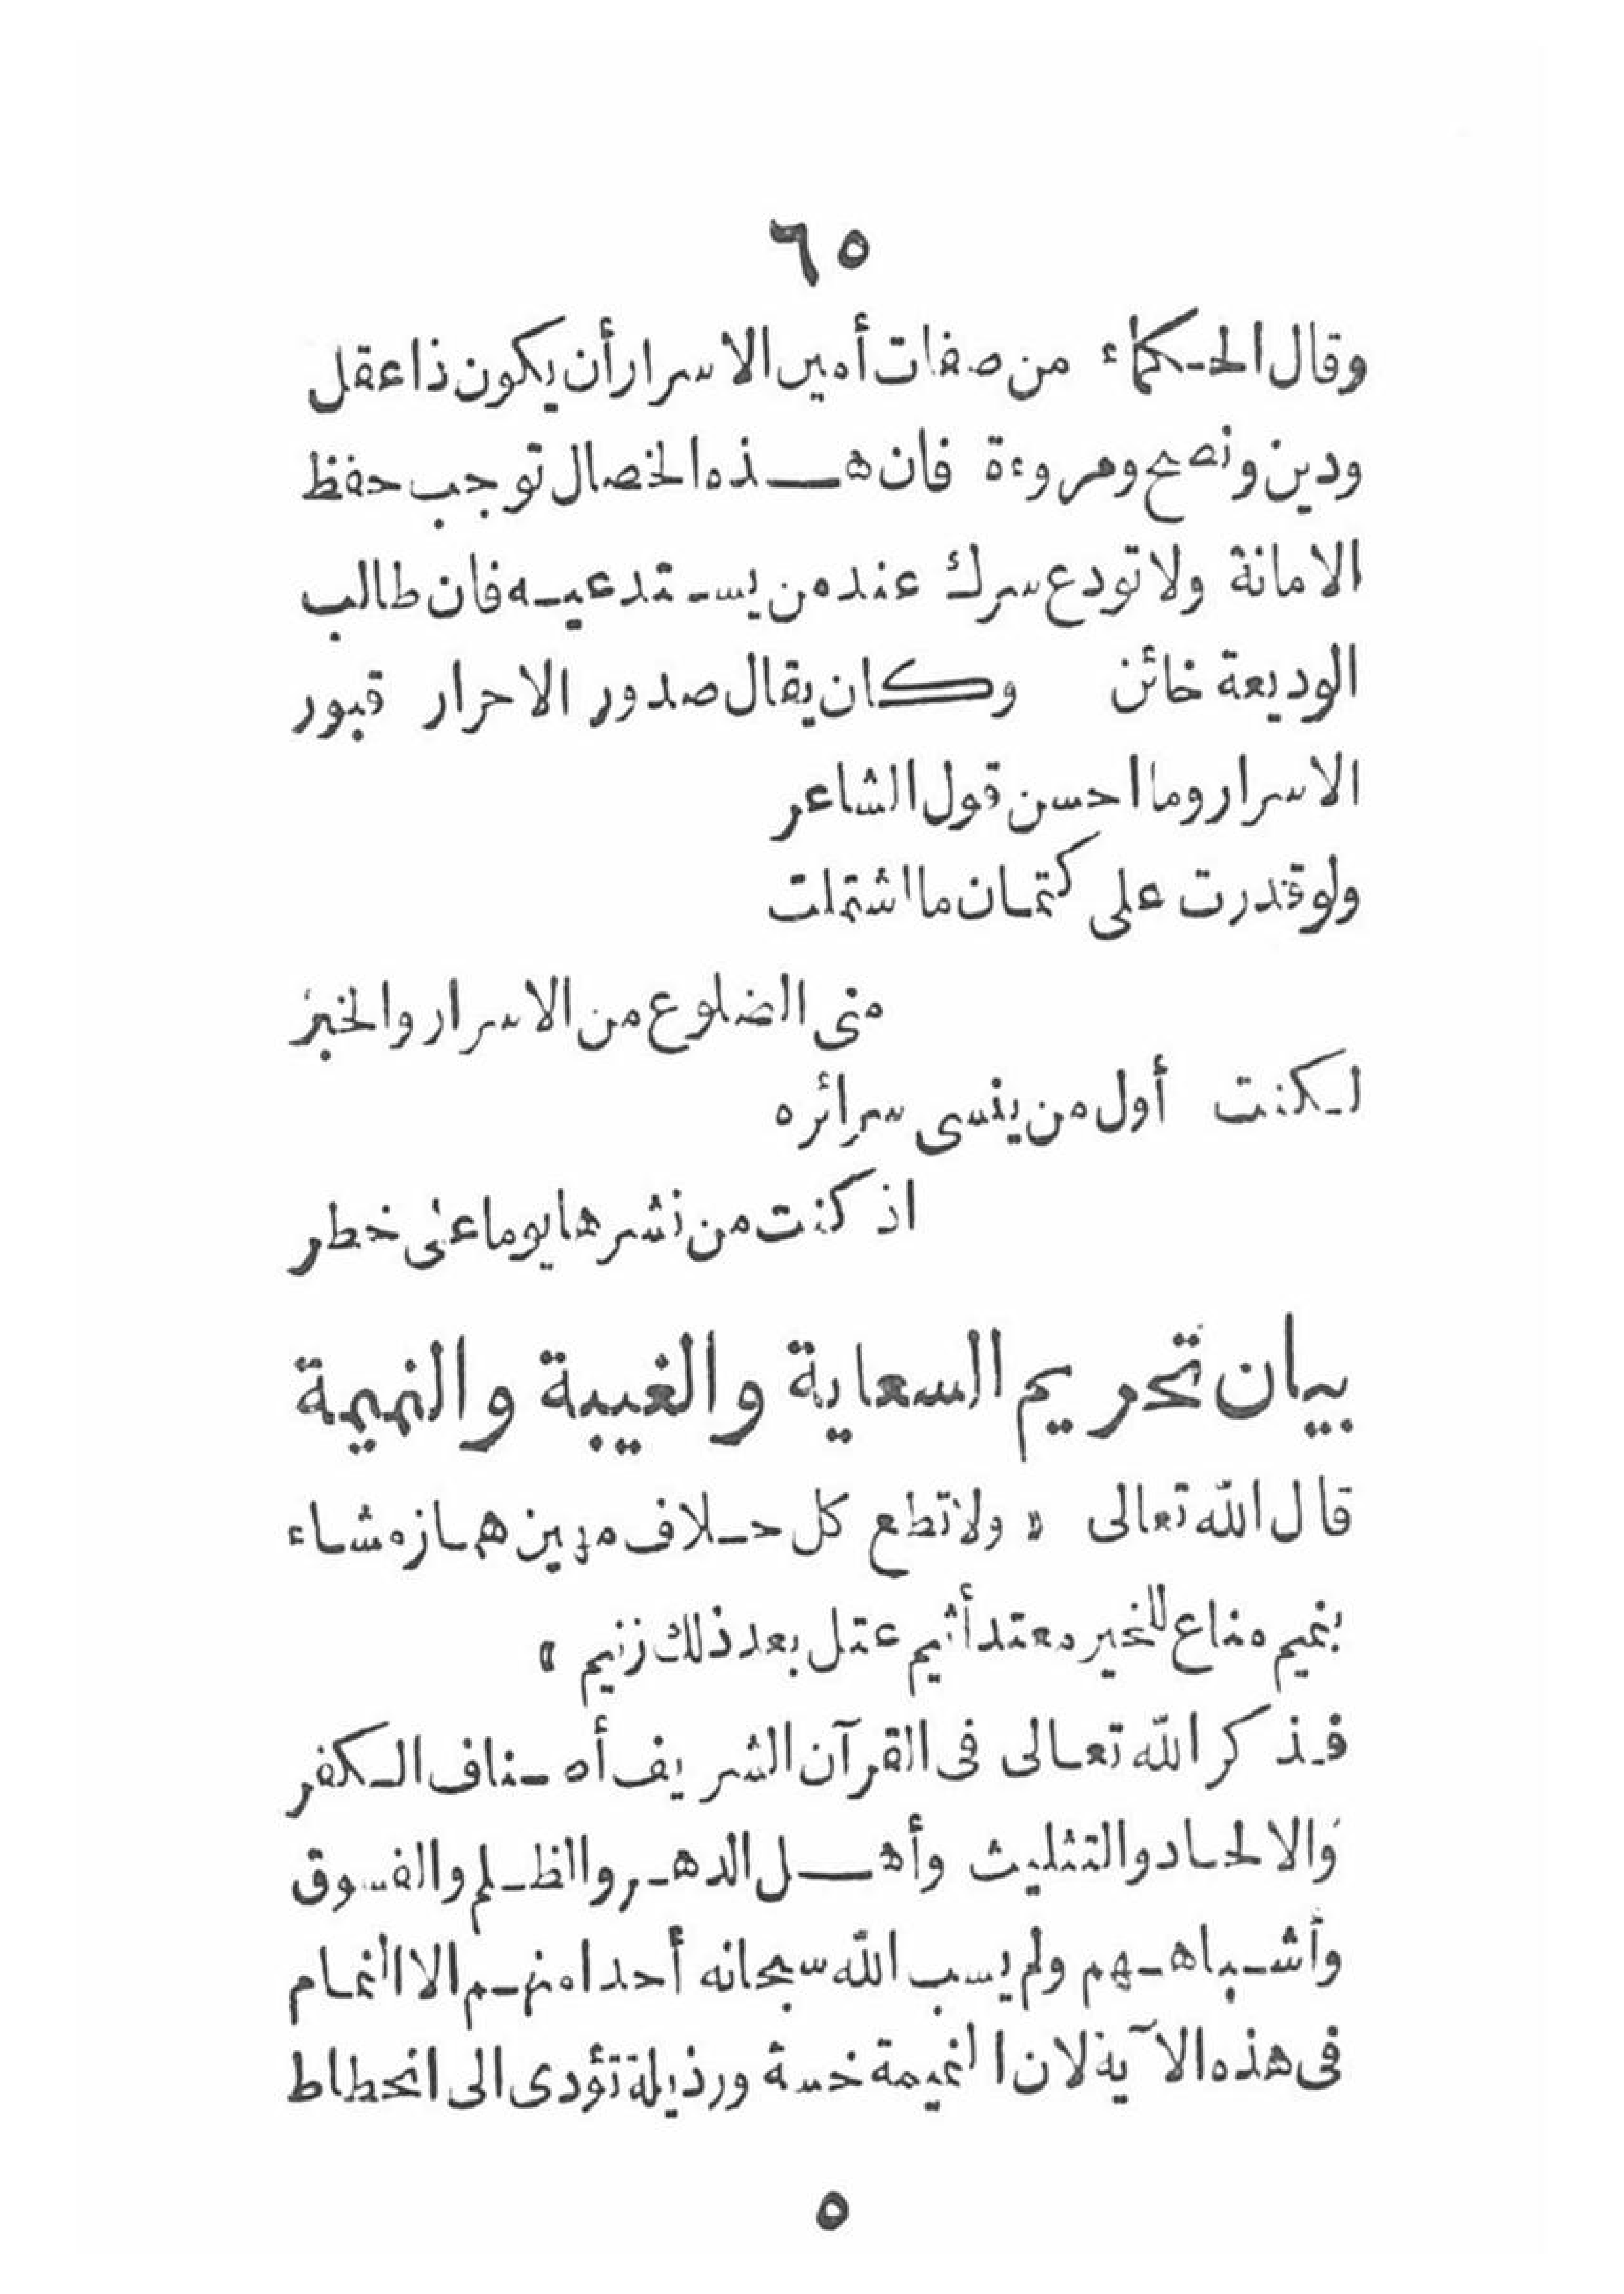 ٦٥
وقال الحكماء من صفات أمير الاسرار أن يكون ذا عقل
ودين ونصح ومروءة فان هذه الخصال توجب حفظ
الامانة ولا تودع سرك عند من يستدعيه فان طالب
الوديعة خائن وكان يقال صدور الاحرار قبور
الاسرار وما احسن قول الشاعر
ولو قدرت على كتمان ما اشتملت
منى الضلوع من الاسرار والخبر
لكنت أول من ينسى سرائره
اذ كنت من نشرها يوما على خطر
بيان تحريم السعاية والغيبة والنميمة
قال الله تعالى « ولا تطع كل حلاف مهين هماز مشاء
بنميم مناع للخير معتد أثيم عتل بعد ذلك زنيم »
فذكر الله تعالى فى القرآن الشريف أصناف الكفر
والالحاد والتثليث وأهل الدهر والظلم والفسوق
وأشباههم ولم يسب الله سبحانه أحدا منهم الا النمام
فى هذه الآية لان النميمة خسة ورذيلة تؤدى الى انحطاط
٥